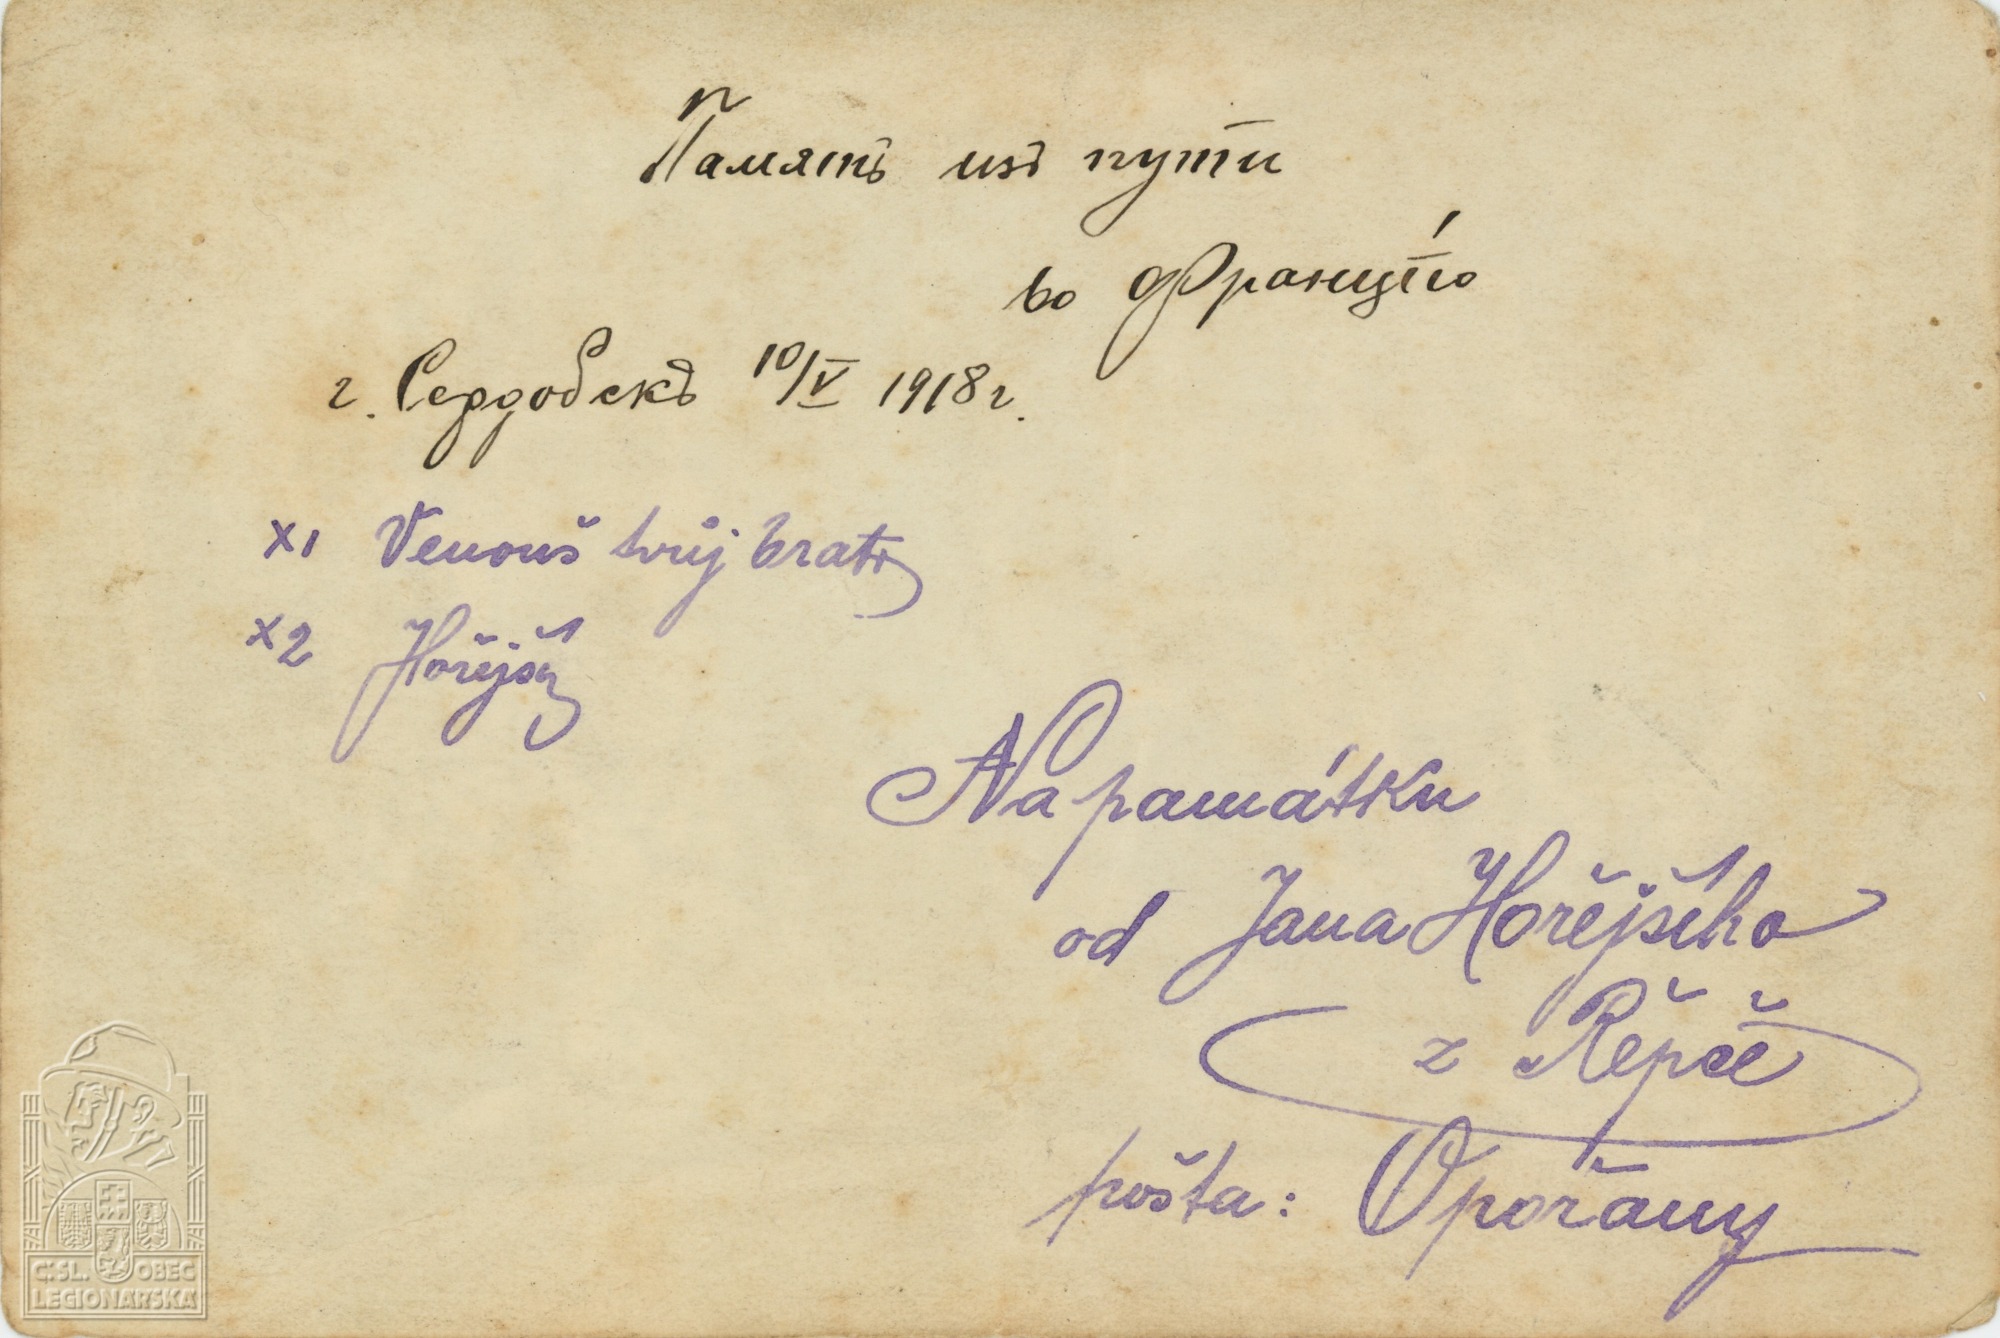 Память изъ пути
во Францію
г. Сердобскъ 10/V 1918 г.
x1 Venouš tvůj bratr
x2 Hořejší
Na památku
od Jana Hořejšího
z Řepče
pošta: Opořany
ČSL. OBEC
LEGIONÁŘSKÁ